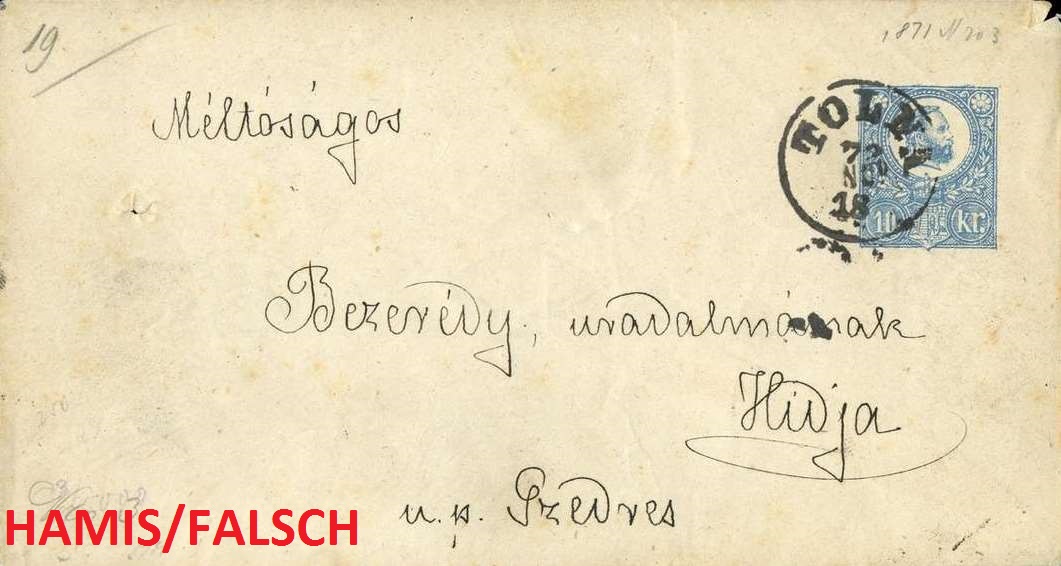 19
1871 N 203
Méltóságos
TOLNA
18
10 kr.
Bezerédy, uradalmának
Hidja
u.p. Szedres
HAMIS/FALSCH